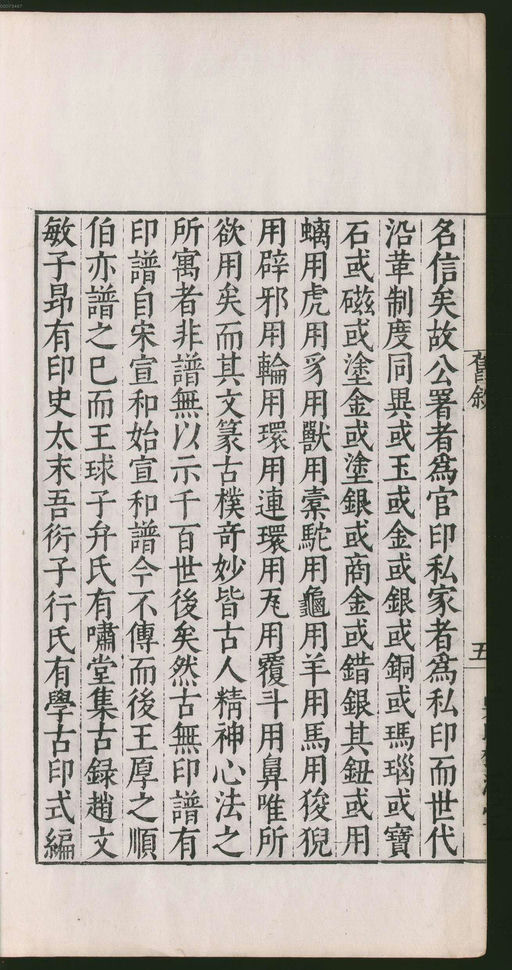 舊敘
五
名信矣故公署者爲官印私家者爲私印而世代
沿革制度同異或玉或金或銀或銅或瑪瑙或寶
石或磁或塗金或塗銀或商金或錯銀其鈕或用
螭用虎用豸用獸用橐駝用龜用羊用馬用狻猊
用辟邪用輪用環用連環用瓦用覆斗用鼻唯所
欲用矣而其文篆古樸奇妙皆古人精神心法之
所寓者非譜無以示千百世後矣然古無印譜有
印譜自宋宣和始宣和譜今不傳而後王厚之順
伯亦譜之巳而王球子弁氏有嘯堂集古録趙文
敏子昂有印史太末吾衍子行氏有學古印式編
00073467